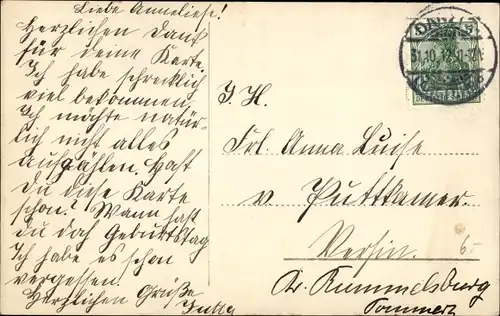 Liebe Anneliese!
Herzlichen Dank
für deine Karte.
Ich habe schrecklich
viel bekommen.
Ich möchte natür-
lich nicht alles
aufzählen. Hast
Du diese Karte
schon? Wann hast
du doch Geburtstag
Ich habe es schon
vergessen.
Herzlichen Grüße
Jutta
DANZIG
31.10.12.11-12V.
I. H.
Frl. Anna Luise
v. Puttkamer.
Versin.
Kr. Rummelsburg
Pommern
6.-